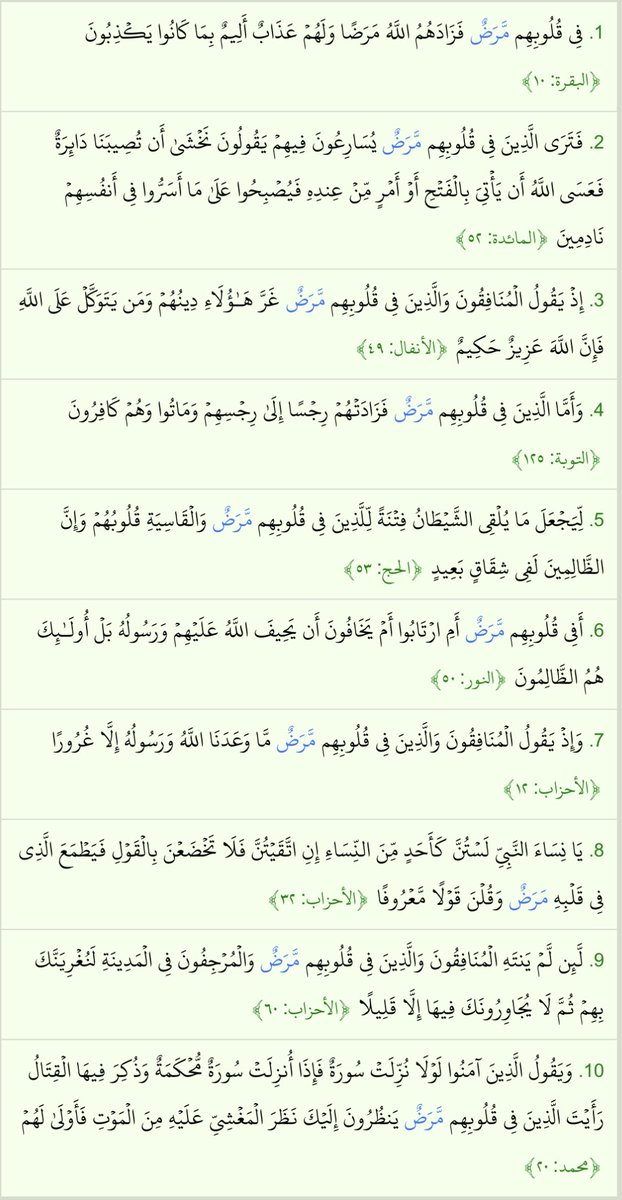 1. فِى قُلُوبِهِم مَّرَضٌ فَزَادَهُمُ اللَّهُ مَرَضًا وَلَهُمْ عَذَابٌ أَلِيمٌ بِمَا كَانُوا يَكْذِبُونَ
﴿البقرة: ١٠﴾
2. فَتَرَى الَّذِينَ فِى قُلُوبِهِم مَّرَضٌ يُسَارِعُونَ فِيهِمْ يَقُولُونَ نَخْشَىٰ أَن تُصِيبَنَا دَائِرَةٌ
فَعَسَى اللَّهُ أَن يَأْتِىَ بِالْفَتْحِ أَوْ أَمْرٍ مِّنْ عِندِهِ فَيُصْبِحُوا عَلَىٰ مَا أَسَرُّوا فِى أَنفُسِهِمْ
نَادِمِينَ ﴿المائدة: ٥٢﴾
3. إِذْ يَقُولُ الْمُنَافِقُونَ وَالَّذِينَ فِى قُلُوبِهِم مَّرَضٌ غَرَّ هَـٰؤُلَاءِ دِينُهُمْ وَمَن يَتَوَكَّلْ عَلَى اللَّهِ
فَإِنَّ اللَّهَ عَزِيزٌ حَكِيمٌ ﴿الأنفال: ٤٩﴾
4. وَأَمَّا الَّذِينَ فِى قُلُوبِهِم مَّرَضٌ فَزَادَتْهُمْ رِجْسًا إِلَىٰ رِجْسِهِمْ وَمَاتُوا وَهُمْ كَافِرُونَ
﴿التوبة: ١٢٥﴾
5. لِّيَجْعَلَ مَا يُلْقِى الشَّيْطَانُ فِتْنَةً لِّلَّذِينَ فِى قُلُوبِهِم مَّرَضٌ وَالْقَاسِيَةِ قُلُوبُهُمْ وَإِنَّ
الظَّالِمِينَ لَفِى شِقَاقٍ بَعِيدٍ ﴿الحج: ٥٣﴾
6. أَفِى قُلُوبِهِم مَّرَضٌ أَمِ ارْتَابُوا أَمْ يَخَافُونَ أَن يَحِيفَ اللَّهُ عَلَيْهِمْ وَرَسُولُهُ بَلْ أُولَـٰئِكَ
هُمُ الظَّالِمُونَ ﴿النور: ٥٠﴾
7. وَإِذْ يَقُولُ الْمُنَافِقُونَ وَالَّذِينَ فِى قُلُوبِهِم مَّرَضٌ مَّا وَعَدَنَا اللَّهُ وَرَسُولُهُ إِلَّا غُرُورًا
﴿الأحزاب: ١٢﴾
8. يَا نِسَاءَ النَّبِىِّ لَسْتُنَّ كَأَحَدٍ مِّنَ النِّسَاءِ إِنِ اتَّقَيْتُنَّ فَلَا تَخْضَعْنَ بِالْقَوْلِ فَيَطْمَعَ الَّذِى
فِى قَلْبِهِ مَرَضٌ وَقُلْنَ قَوْلًا مَّعْرُوفًا ﴿الأحزاب: ٣٢﴾
9. لَّئِن لَّمْ يَنتَهِ الْمُنَافِقُونَ وَالَّذِينَ فِى قُلُوبِهِم مَّرَضٌ وَالْمُرْجِفُونَ فِى الْمَدِينَةِ لَنُغْرِيَنَّكَ
بِهِمْ ثُمَّ لَا يُجَاوِرُونَكَ فِيهَا إِلَّا قَلِيلًا ﴿الأحزاب: ٦٠﴾
10. وَيَقُولُ الَّذِينَ آمَنُوا لَوْلَا نُزِّلَتْ سُورَةٌ فَإِذَا أُنزِلَتْ سُورَةٌ مُّحْكَمَةٌ وَذُكِرَ فِيهَا الْقِتَالُ
رَأَيْتَ الَّذِينَ فِى قُلُوبِهِم مَّرَضٌ يَنظُرُونَ إِلَيْكَ نَظَرَ الْمَغْشِىِّ عَلَيْهِ مِنَ الْمَوْتِ فَأَوْلَىٰ لَهُمْ
﴿محمد: ٢٠﴾